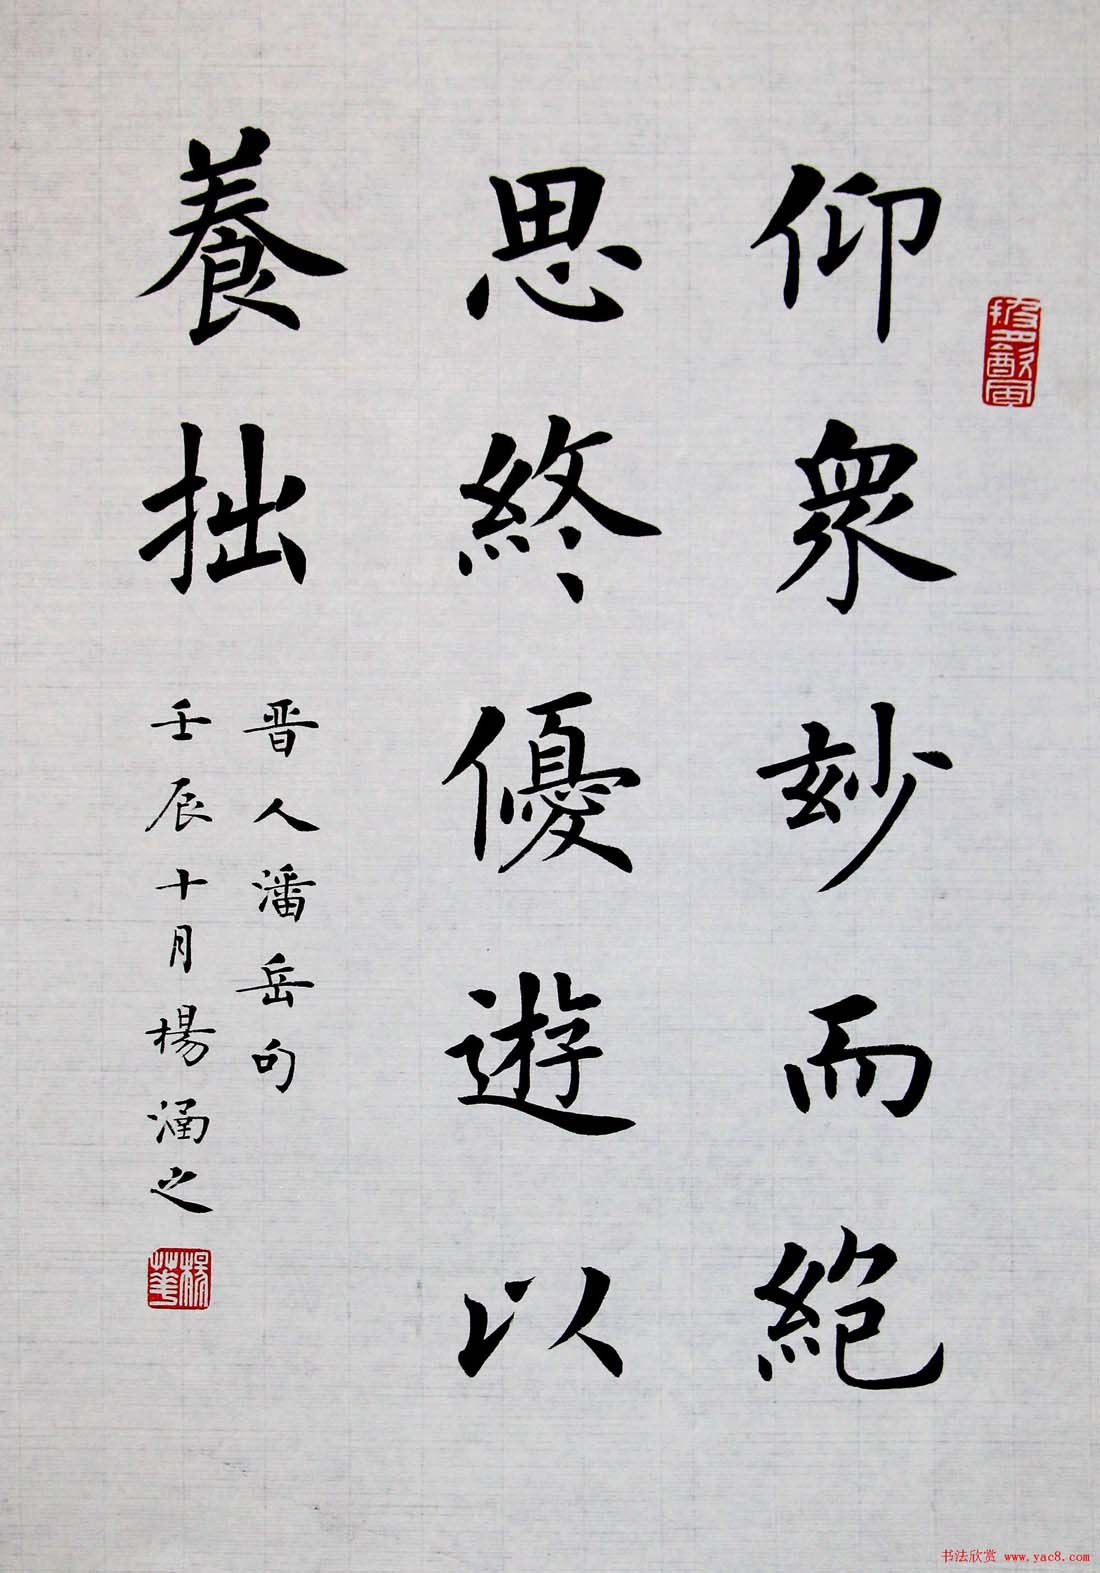 仰衆玅而絕
思終優遊以
養拙
晋人潘岳句
壬辰十月楊涵之
楊華
书法欣赏 www.yac8.com